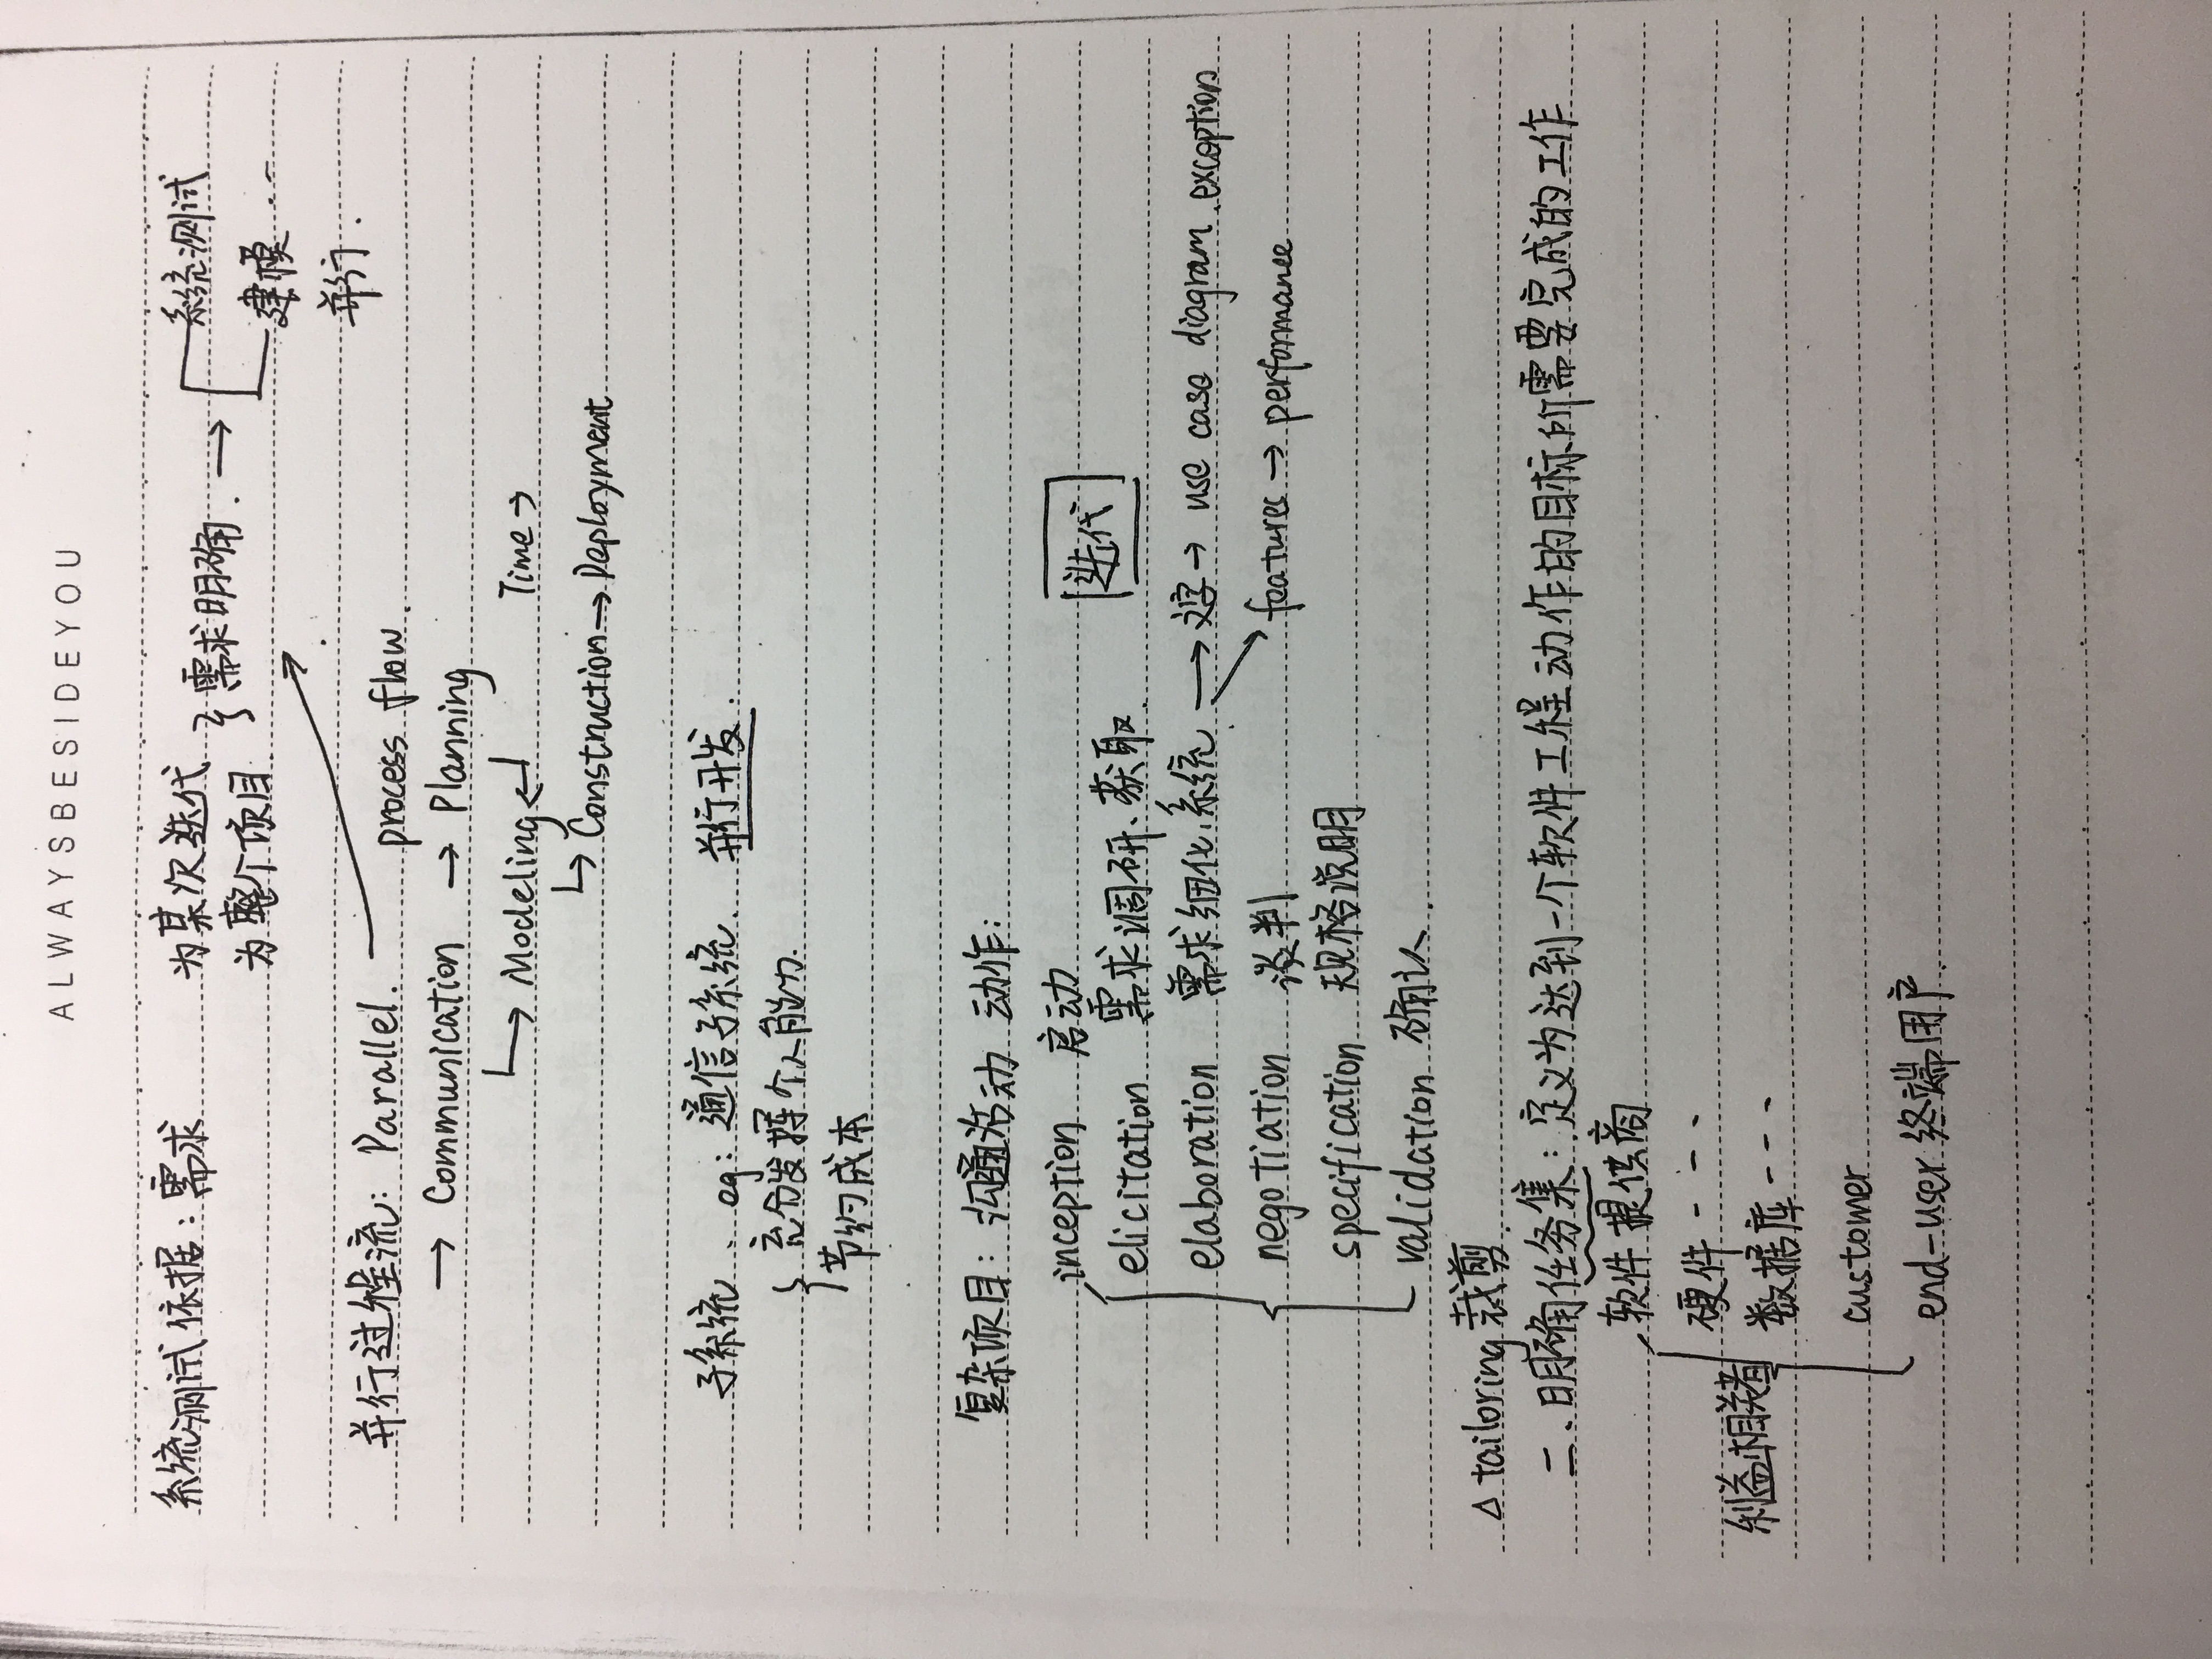 ALWAYSBESIDEYOU
系统测试依据：需求 为某次迭代 } 需求明确. → 系统测试
为整个项目. 建模 ...
并行.
并行过程流： Parallel. process flow.
→ Communication → Planning
↳ Modeling ↵ Time →
↳ Construction → Deployment
子系统、eg：通信子系统. 并行开发.
{ 充分发挥个人能力.
节约成本
复杂项目：沟通活动 动作：
inception 启动
elicitation 需求调研、获取. 迭代
elaboration 需求细化.系统 → 文字 → use case diagram.exception
negotiation 谈判 features → performance
specification 规格说明
validation 确认.
△ tailoring 裁剪.
二、明确任务集：定义为达到一个软件工程动作的目标所需要完成的工作
软件提供商
硬件 - - -
利益相关者
数据库 - - -
customer
end-user 终端用户.